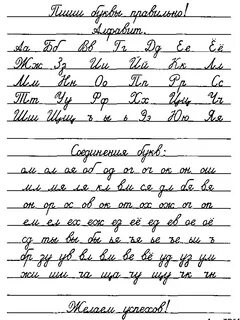 Пиши буквы правильно!
Алфавит.
Аа Бб Вв Гг Дд Ее Ёё
Жж Зз Ии Йй Кк Лл
Мм Нн Оо Пп Рр Сс
Тт Уу Рф Хх Цц Чч
Шш Щщ ъ ы ь Ээ Юю Яя
Соединения букв:
ам ал ая об од ог ос ок он ош
мл мя ля кл вм ся дл бя вя
он ор ох ов ок от ох ож ог оп
ем ел ех еж ез её ед ев ое об
сд ты вы бы ья чя ье ъе ы ъ
бр зу ув вл вм ве вё уд уз ум
жи ши ча ща чу щу чк чн
Желаем успехов!